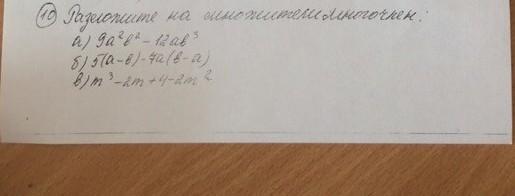 10) Разложите на множители многочлен:
а) 9a²b² - 12ab³
б) 5(a-b) - 4a(b-a)
в) m³ - 2m + 4 - 2m²